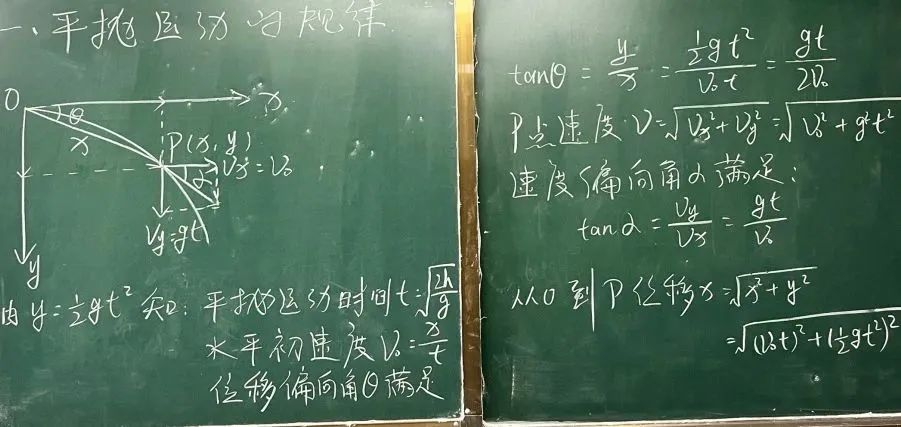 一、平抛运动的规律
O
θ
x
x
P(x,y)
Vx=V₀
α
Vy=gt
y
由y=½gt² 知: 平抛运动时间t=√(2h/g)
水平初速度V₀=x/t
位移偏向角θ满足
tanθ = y/x = ½gt²/V₀t = gt/2V₀
P点速度V=√(Vx²+Vy²)=√(V₀²+g²t²)
速度偏向角α满足:
tanα=Vy/Vx=gt/V₀
从O到P位移x=√(x²+y²)
=√((V₀t)²+(½gt²)²)